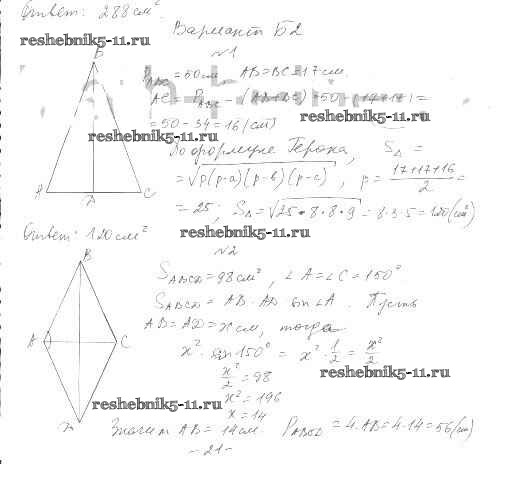 Ответ: 288 см².
Вариант Б2
reshebnik5-11.ru
№1
B
P_ABC = 50 см AB=BC=17 см.
AC = P_ABC - (AB+BC) = 50 - (17+17) =
reshebnik5-11.ru
= 50 - 34 = 16 (см)
reshebnik5-11.ru
По формуле Герона, S_Δ =
= √p(p-a)(p-b)(p-c), p = (17+17+16)/2 =
A D C
= 25; S_Δ = √25·8·8·9 = 8·3·5 = 120 (см²)
Ответ: 120 см²
reshebnik5-11.ru
№2
B
S_ABCD = 98 см², ∠A = ∠C = 150°
S_ABCD = AB·AD sin∠A. Пусть
AB = AD = x см, тогда
A C
x²·sin150° = x²·1/2 = x²/2
x²/2 = 98
reshebnik5-11.ru
x² = 196
reshebnik5-11.ru
x = 14
D
Значит AB = 14 см. P_ABCD = 4·AB = 4·14 = 56 (см)
- 21 -